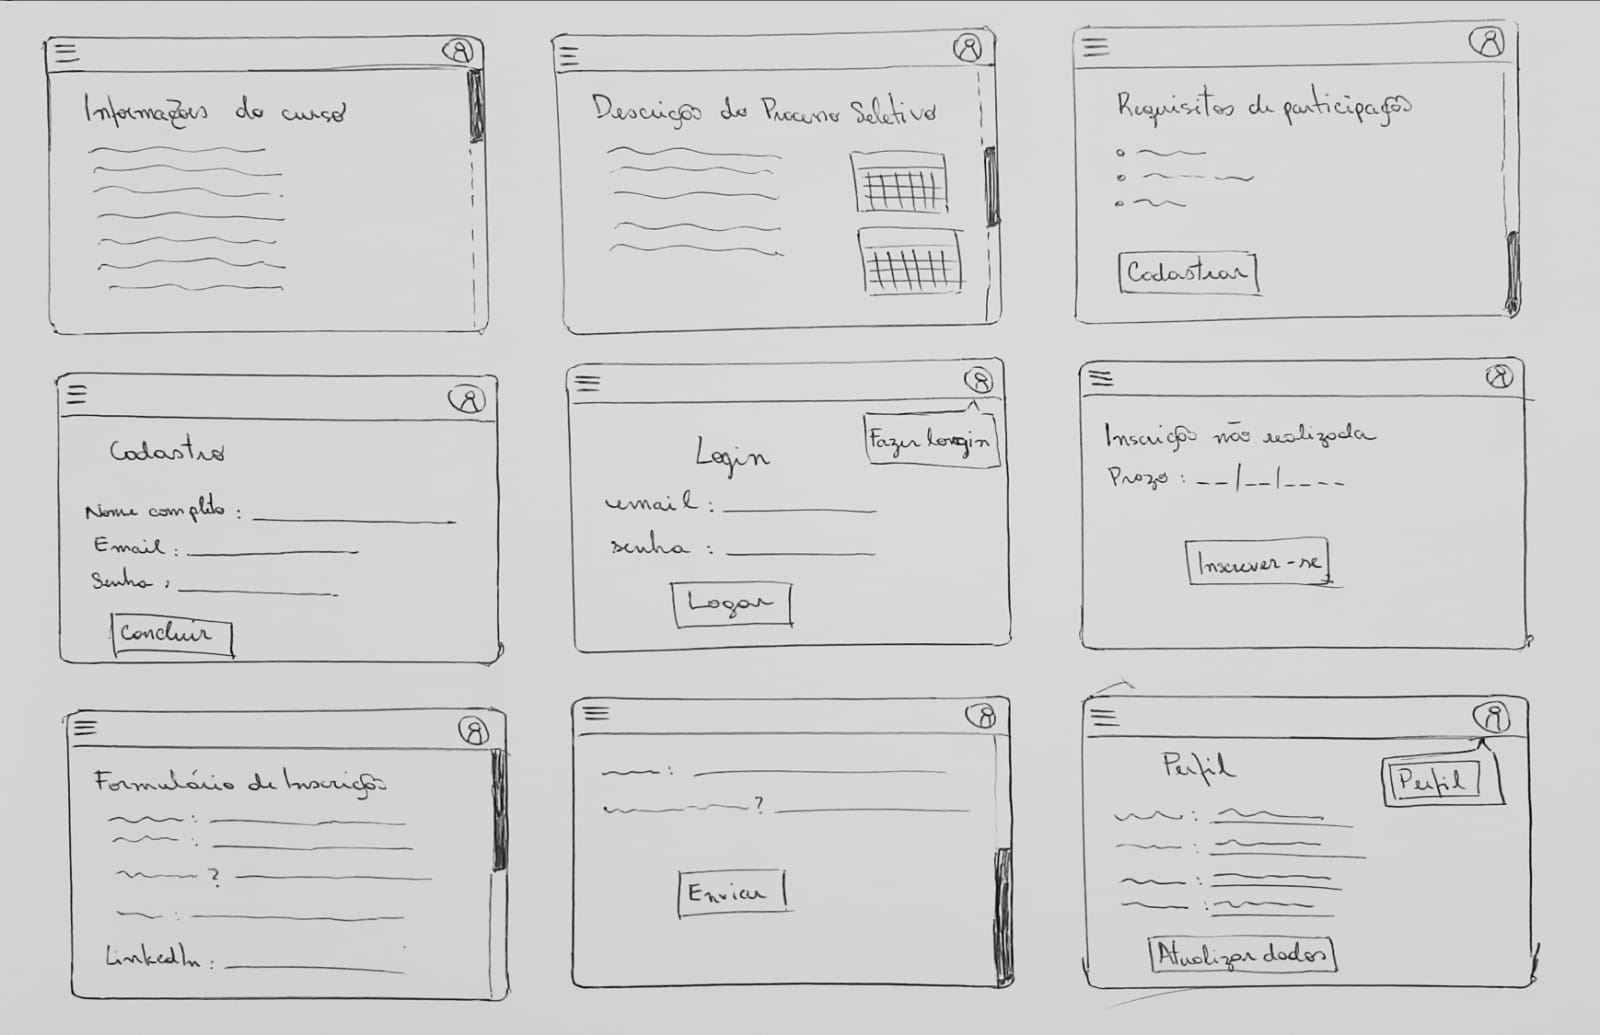 Informações do curso
Descrição do Processo Seletivo
Requisitos de participação
Cadastrar
Cadastro
Nome completo :
Email :
Senha :
Concluir
Fazer longin
Login
email :
senha :
Logar
Inscrição não realizada
Prazo : __/__/____
Inscrever-se
Formulário de Inscrição
:
:
?
:
LinkedIn :
:
?
Enviar
Perfil
Perfil
:
:
:
:
Atualizar dados